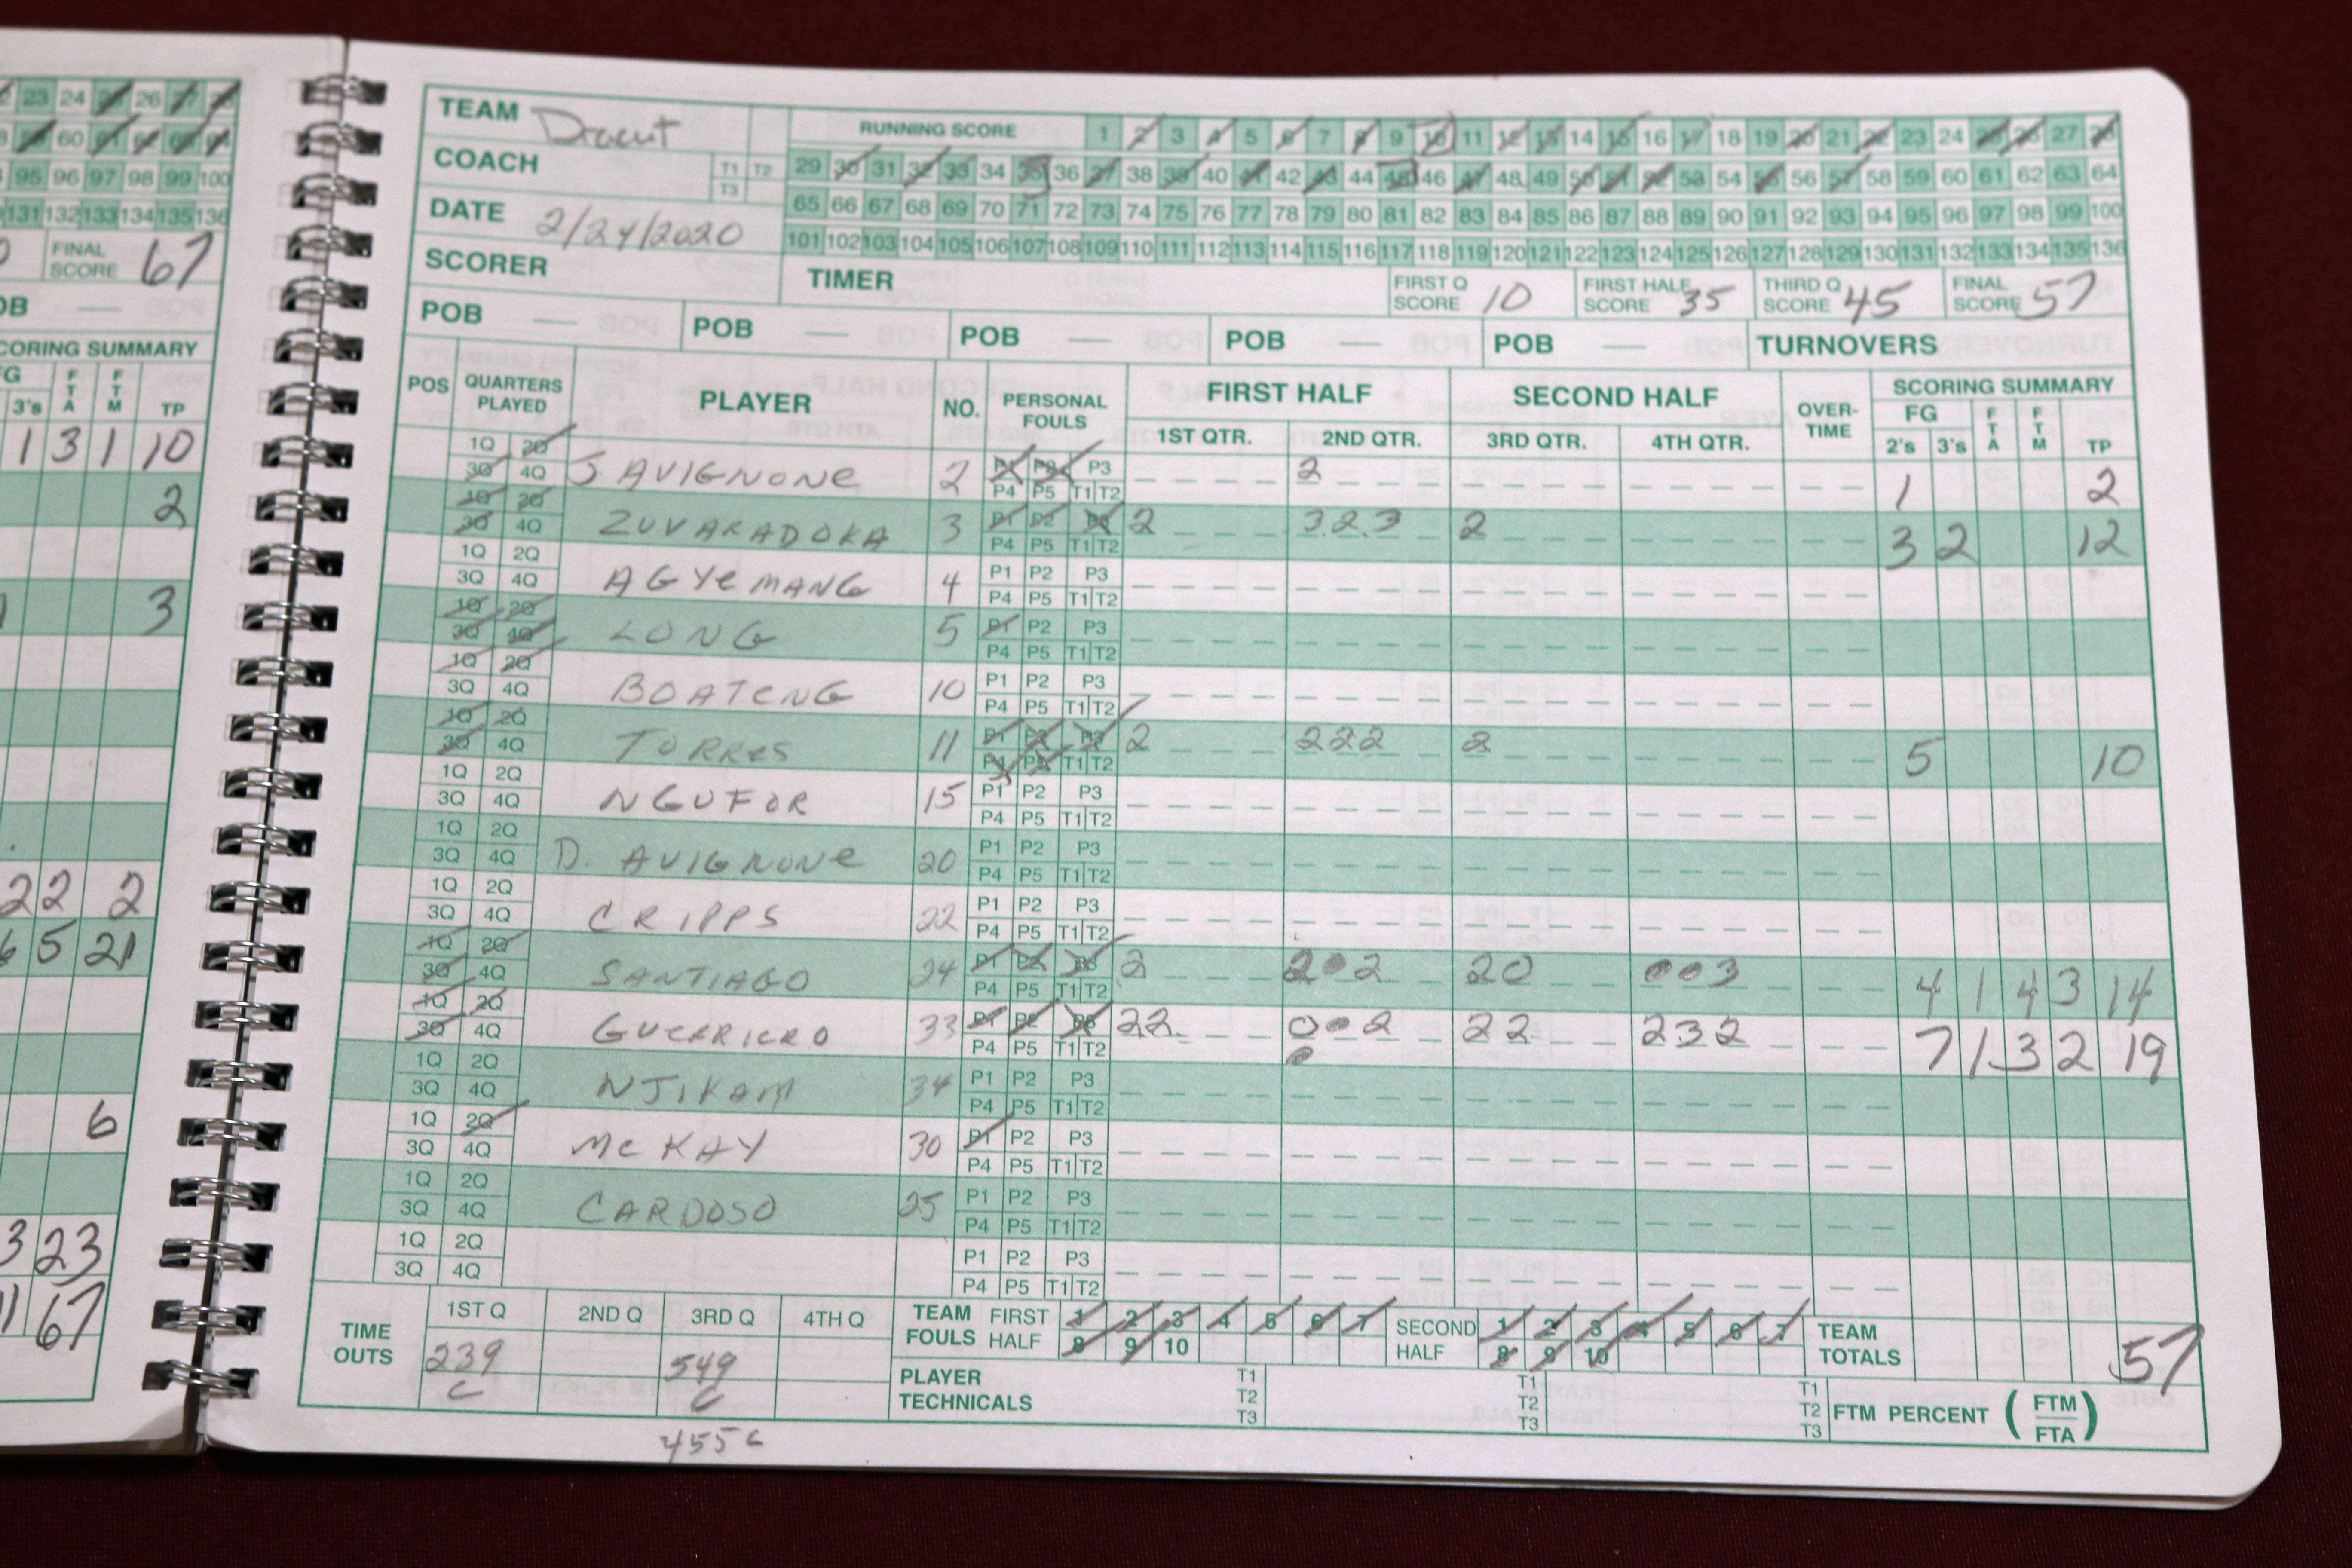 23 24 25 26 27 28
59 60 61 62 63 64
95 96 97 98 99 100
131 132 133 134 135 136
FINAL SCORE 67
SCORING SUMMARY
FG FTA FTM TP
3's
1 3 1 10
2
3
22 2
6 5 21
6
3 23
11 67
TEAM Dracut
RUNNING SCORE 1 2 3 4 5 6 7 8 9 10 11 12 13 14 15 16 17 18 19 20 21 22 23 24 25 26 27 28
COACH T1 T2 T3
29 30 31 32 33 34 35 36 37 38 39 40 41 42 43 44 45 46 47 48 49 50 51 52 53 54 55 56 57 58 59 60 61 62 63 64
DATE 2/24/2020
65 66 67 68 69 70 71 72 73 74 75 76 77 78 79 80 81 82 83 84 85 86 87 88 89 90 91 92 93 94 95 96 97 98 99 100
101 102 103 104 105 106 107 108 109 110 111 112 113 114 115 116 117 118 119 120 121 122 123 124 125 126 127 128 129 130 131 132 133 134 135 136
SCORER TIMER FIRST Q SCORE 10 FIRST HALF SCORE 35 THIRD Q SCORE 45 FINAL SCORE 57
POB — POB — POB — POB — POB — TURNOVERS
POS QUARTERS PLAYED PLAYER NO. PERSONAL FOULS FIRST HALF SECOND HALF OVER-TIME SCORING SUMMARY
1ST QTR. 2ND QTR. 3RD QTR. 4TH QTR. FG 2's 3's FTA FTM TP
1Q 2Q 3Q 4Q J AVIGNONE 2 P1 P2 P3 P4 P5 T1 T2 2 1 2
1Q 2Q 3Q 4Q ZUVARADOKA 3 P1 P2 P3 P4 P5 T1 T2 2 3 2 3 2 3 2 12
1Q 2Q 3Q 4Q AGYEMANG 4 P1 P2 P3 P4 P5 T1 T2
1Q 2Q 3Q 4Q LONG 5 P1 P2 P3 P4 P5 T1 T2
1Q 2Q 3Q 4Q BOATENG 10 P1 P2 P3 P4 P5 T1 T2
1Q 2Q 3Q 4Q TORRES 11 P1 P2 P3 P4 P5 T1 T2 2 2 2 2 2 5 10
1Q 2Q 3Q 4Q NGUFOR 15 P1 P2 P3 P4 P5 T1 T2
1Q 2Q 3Q 4Q D. AVIGNONE 20 P1 P2 P3 P4 P5 T1 T2
1Q 2Q 3Q 4Q CRIPPS 22 P1 P2 P3 P4 P5 T1 T2
1Q 2Q 3Q 4Q SANTIAGO 24 P1 P2 P3 P4 P5 T1 T2 2 2 ● 2 2 0 ● ● 3 4 1 4 3 14
1Q 2Q 3Q 4Q GUERRIERO 33 P1 P2 P3 P4 P5 T1 T2 2 2 0 ● 2 ● 2 2 2 3 2 7 1 3 2 19
1Q 2Q 3Q 4Q NJIKAM 34 P1 P2 P3 P4 P5 T1 T2
1Q 2Q 3Q 4Q McKAY 30 P1 P2 P3 P4 P5 T1 T2
1Q 2Q 3Q 4Q CARDOSO 25 P1 P2 P3 P4 P5 T1 T2
1Q 2Q 3Q 4Q P1 P2 P3 P4 P5 T1 T2
TIME OUTS 1ST Q 2ND Q 3RD Q 4TH Q
239 C 549 C
455 C
TEAM FOULS FIRST HALF 1 2 3 4 5 6 7 8 9 10 SECOND HALF 1 2 3 4 5 6 7 8 9 10 TEAM TOTALS 57
PLAYER TECHNICALS T1 T2 T3 T1 T2 T3 T1 T2 T3 FTM PERCENT (FTM FTA)